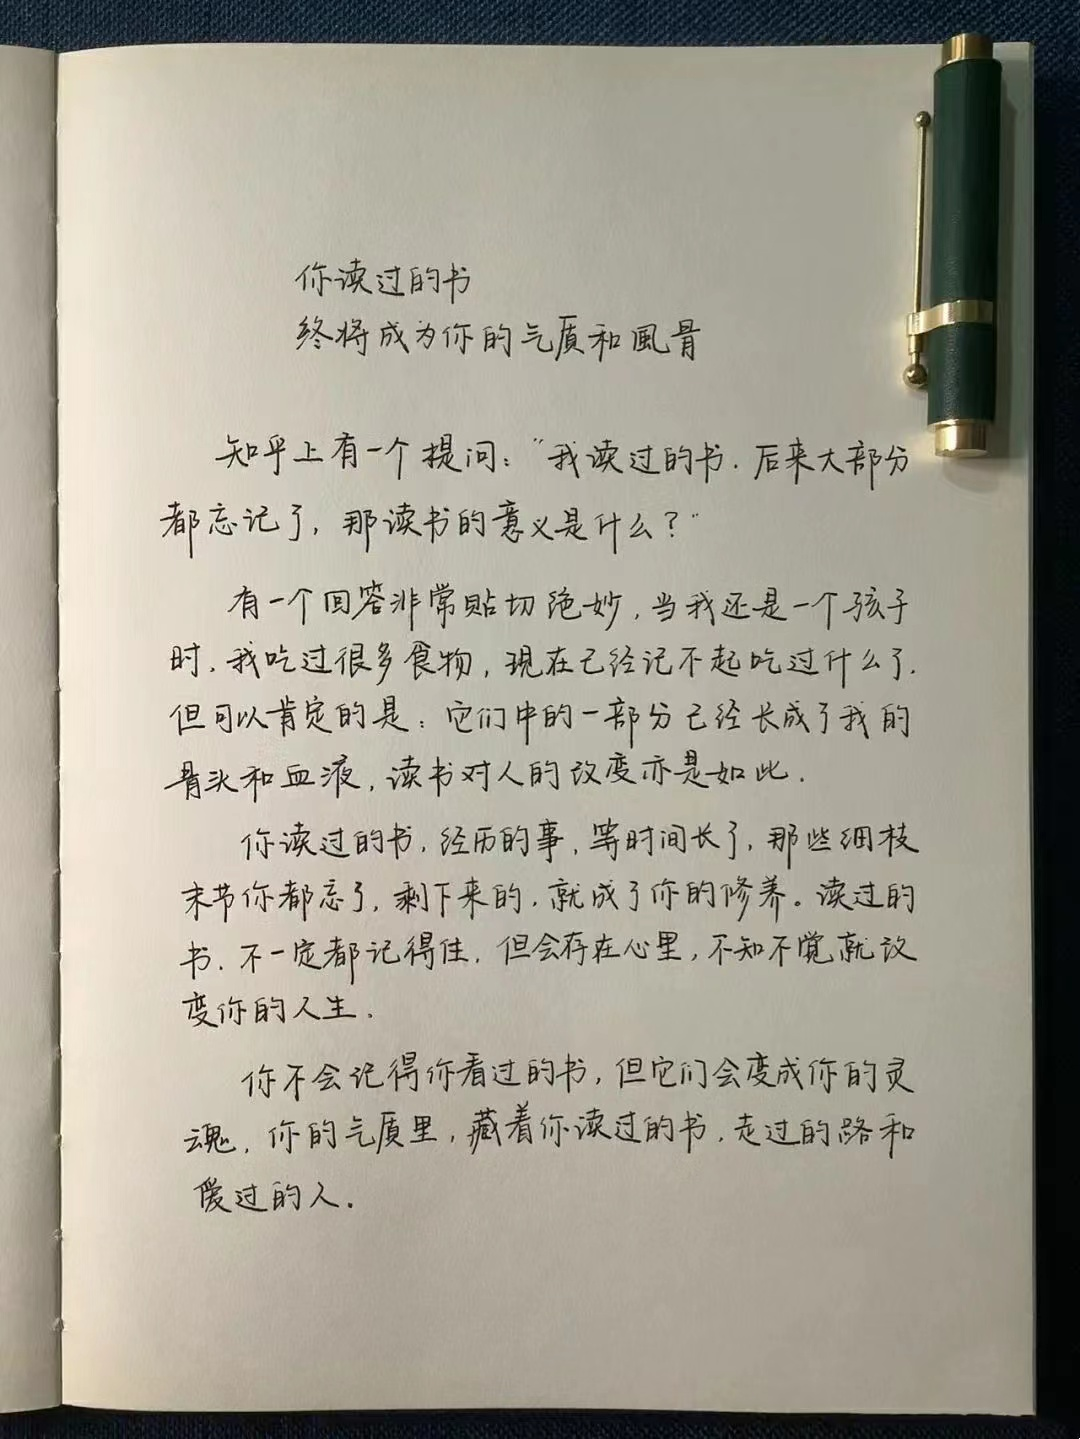 你读过的书
终将成为你的气质和風骨
知乎上有一个提问："我读过的书.后来大部分
都忘记了,那读书的意义是什么?"
有一个回答非常贴切绝妙,当我还是一个孩子
时,我吃过很多食物,现在已经记不起吃过什么了.
但可以肯定的是:它们中的一部分已经长成了我的
骨头和血液,读书对人的改变亦是如此.
你读过的书,经历的事,等时间长了,那些细枝
末节你都忘了,剩下来的,就成了你的修养。读过的
书,不一定都记得住,但会存在心里,不知不觉就改
变你的人生.
你不会记得你看过的书,但它们会变成你的灵
魂,你的气质里,藏着你读过的书,走过的路和
爱过的人.